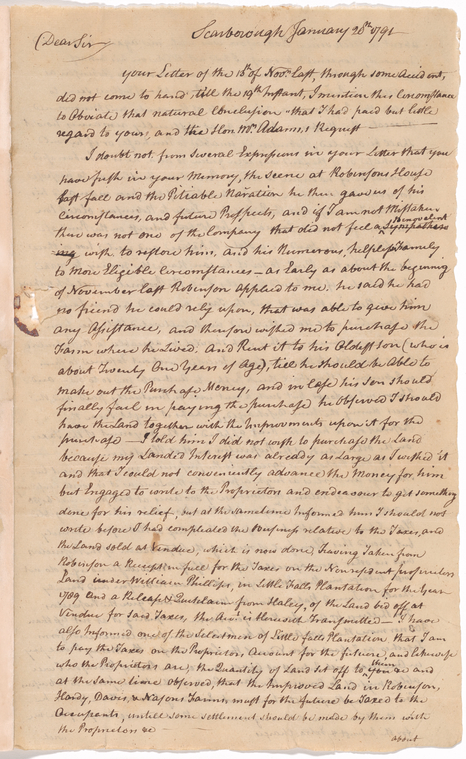 Scarborough January 28th 1791
Dear Sir
your Letter of the 18th of Novr. last, through some Accident,
did not come to hand till the 19th Instant, I mention this Circumstance
to Obviate that natural Conclusion "that I had paid but little
regard to yours, and the Honl. Mr. Adams,s Request
I doubt not from Several Expressions in your Letter that you
have fresh in your Memory, the Scene at Robinsons House
last fall and the Pitiable Naration he then gave us of his
Circumstances, and future Prospects, and if I am not Mistaken
there was not one of the Company that did not feel a Benevolent Sympathis
ing wish to restore him, and his Numerous, helpless Family
to More Eligible Circumstances — as Early as about the beginning
of November last Robinson applied to me. he said he had
no friend he could rely upon, that was able to give him
any Assistance, and therefore wished me to purchase the
Farm where he Lived. And Rent it to his Oldest son (who is
about Twenty One Years of Age) till he should be Able to
make out the Purchase Money, and in Case his Son should
finally fail in paying the purchase he Observed I should
have the Land together with the Improvements upon it for the
purchase — I told him I did not wish to purchase the Land
because my Landed Interest was already as Large as I wished it
and that I could not conveniently advance the Money for him
but Engaged to write to the Proprietors and endeavour to get something
done for his relief, but at the sametime Informed him I should not
write before I had compleated the Business relative to the Taxes, and
the Land sold at Vendue, which is now done, having Taken from
Robinson a Receipt in full for the Taxes on the Nonresident proprietors
Land under William Phillips, in Little Falls Plantation for the Year
1789 and a Release & Quitclaim from Haley, of the Land bid off at
Vendue for said Taxes, the is herewith Transmitted — I have
also Informed one of the Selectmen of Little falls Plantation that I am
to pay the Taxes on the Proprietors Account for the future, and likewise
who the Proprietors are; the Quantity of Land set off to them &c and
at the same time observed, that the Improved Land in Robinson,
Hardy, Davis, & Nasons Farms, must for the future be Taxed to the
Occupants, untill some settlement should be made by them with
the Proprietors &c
about